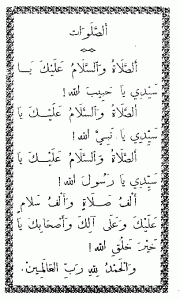 ألصَّلَوَات
ألصَّلَاةُ وَٱلسَّلَامُ عَلَيْكَ يَا
سَيِّدِي يَا حَبِيبَ الله!
ألصَّلَاةُ وَٱلسَّلَامُ عَلَيْكَ يَا
سَيِّدِي يَا نَبِيَّ الله!
ألصَّلَاةُ وَٱلسَّلَامُ عَلَيْكَ يَا
سَيِّدِي يَا رَسُولَ الله!
أَلْفُ صَلَاةٍ وَأَلْفُ سَلَامٍ
عَلَيْكَ وَعَلَى آلِكَ وَأَصْحَابِكَ يَا
خَيْرَ خَلْقِ الله!
وَٱلْحَمْدُ لِلهِ رَبِّ ٱلْعَالَمِينَ.